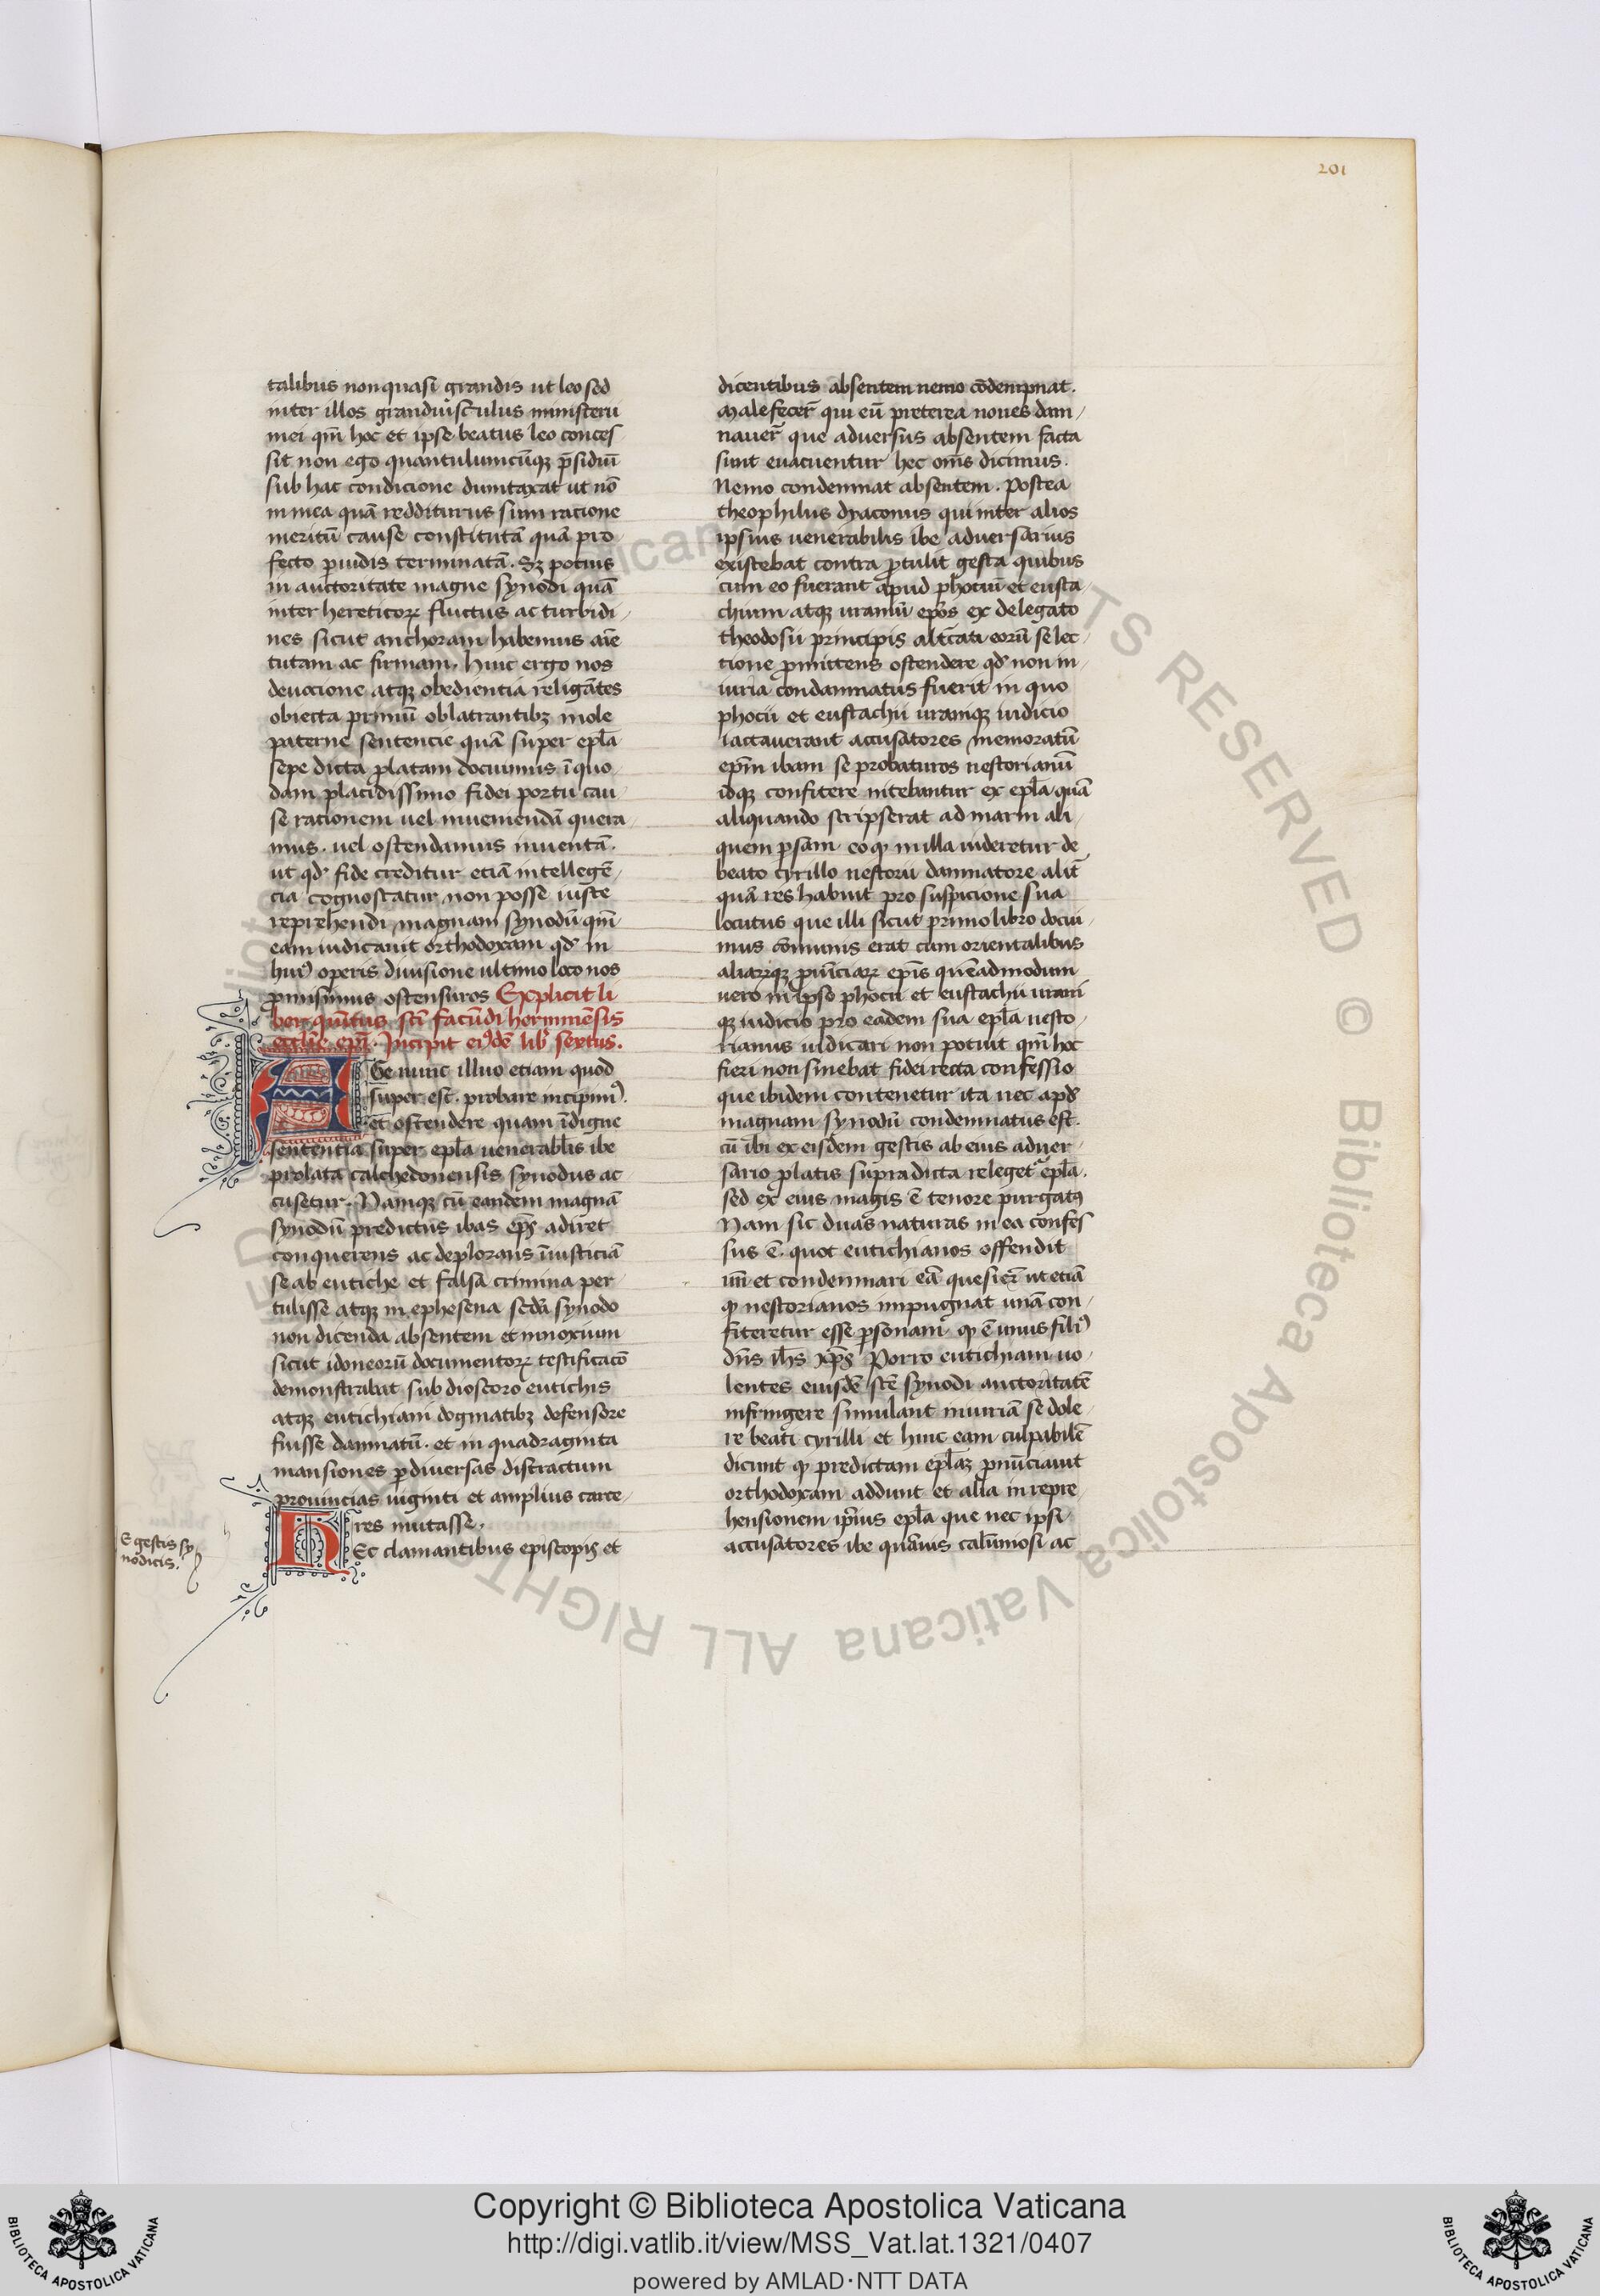 201
talibus non quasi grandis ut leo sed
inter illos grandiusculus ministerii
mei qm̄ hoc et ipse beatus leo conces
sit non ego quantulumcūqꝫ p̄sidiū
sub hac condicione dumtaxat ut nō
in mea quā redditurus sum racione
meritū cause constitutā quā pro
fecto ꝑuidis terminatā. Sꝫ potius
in auctoritate magne synodi quā
inter hereticoꝝ fluctus ac turbidi
nes sicut anchoram habemus aīe
tutam ac firmam. huic ergo nos
deuocione atqꝫ obedientia religātes
obiecta primū oblatrantibꝫ mole
paterne sentencie quā super epl̄a
sepe dicta ꝓlatam docuimus ī quo
dam placidissimo fidei portu cau
se racionem uel inueniendā quera
mus. uel ostendamus inuentā.
ut qd̓ fide creditur eciā intellegē
cia cognoscatur non posse iuste
reprehendi magnam synodū qm̄
eam iudicauit orthodoxam qd̓ in
huiꝰ operis diuisione ultimo loco nos
ꝓmisimus ostensuros Explicit li
ber quītus sc̄i facūdi hermiēsis
eccl̄ie epī. Incipit eiꝰdē lib̓ sextus.
AGe nunc illuo etiam quod
super est. probare incipimꝰ.
et ostendere quam īdigne
sententia super epl̄a uenerabl̄is ibe
prolata calchedonensis synodus ac
cusetur. Namqꝫ cū eandem magnā
synodū predictus ibas ep̄s adiret
conquerens ac deplorans īiusticiā
se ab eutiche et falsa crimina per
tulisse atqꝫ in ephesena sed̄a synodo
non dicenda absentem et innoxium
sicut idoneorū documentoꝝ testificacō
demonstrabat sub dioscoro eutichis
atqꝫ eutichiani dogmatibꝫ defensore
fuisse damnatū. et in quadraginta
mansiones ꝑ diuersas distractum
prouincias uiginti et amplius carce
res mutasse.
E gestis sy
nodicis.
HEc clamantibus episcopis et
dicentibus absentem nemo cōdempnat.
Male fecer̄ qui eū preterea noues dam
nauer̄ que aduersus absentem facta
sunt euacuentur hec om̄s dicimus.
Nemo condemnat absentem. Postea
theophilus dyaconus qui inter alios
ipsius uenerabilis ibe aduersarius
existebat contra ꝓtulit gesta quibus
cum eo fuerant apud phociū et eusta
chium atqꝫ uraniū epōs ex delegato
theodosii principis altercati eorū se lec
tione ꝓmittens ostendere qd̓ non in
iuria condamnatus fuerit in quo
phocii et eustachii uranīqꝫ iudicio
iactauerant accusatores memoratū
epm̄ ibam se probaturos nestorianū
idqꝫ confitere nitebantur ex epl̄a quā
aliquando scripserat ad marin ali
quem ꝑsam eo qꝫ in illa uideretur de
beato cyrillo nestorii damnatore alit̄
quā res habuit pro suspicione sua
locutus que illi sicut primo libro docui
mus cōmunis erat cum orientalibus
aliarꝝqꝫ ꝓuīciaꝝ epīs quēadmodum
uero in ipso phocii et eustachii urani
qꝫ iudicio pro eadem sua epl̄a nesto
rianus iudicari non potuit qm̄ hoc
fieri non sinebat fidei recta confessio
que ibidem contenetur ita nec apd̓
magnam synodū condemnatus est.
cū ibi ex eisdem gestis ab eius aduer
sario ꝓlatis supradicta relegetᷣ epl̄a.
sed ex eius magis ē tenore purgatꝰ
Nam sic duas naturas in ea confes
sus ē. quot eutichianos offendit
un̄ et condemnari eā quesier̄ ut etiā
qꝫ nestorianos impugnat unā con
fiteretur esse ꝑsonam qꝫ ē unus filiꝰ
dn̄s ih̄s xp̄s Porro eutichiani uo
lentes eiusdē sc̄e synodi auctoritatē
infringere simulant iniuriā se dole
re beati cyrilli et hinc eam culpabilē
dicunt qꝫ predictam epl̄aꝫ ꝓnūciauit
orthodoxam addunt et alia in repre
hensionem ipius epl̄a que nec ipsi
accusatores ibe quāuis calūmosi ac
Copyright © Biblioteca Apostolica Vaticana
http://digi.vatlib.it/view/MSS_Vat.lat.1321/0407
powered by AMLAD·NTT DATA
BIBLIOTECA APOSTOLICA VATICANA
BIBLIOTECA APOSTOLICA VATICANA